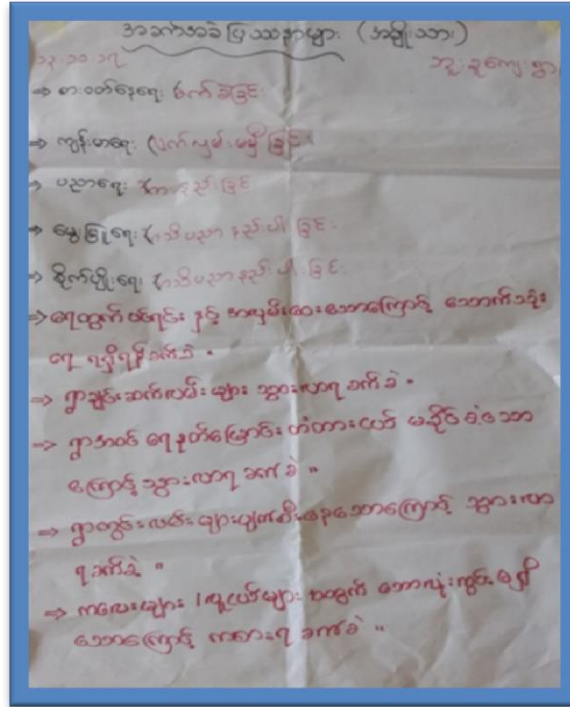 အခက်အခဲပြဿနာများ (အမျိုးသား)
၁၃.၁၁.၁၇
ဘူးခူကျေးရွာ
⇒ စားဝတ်နေရေး ခက်ခဲခြင်း
⇒ ကျန်းမာရေး (လက်လှမ်းမမှီခြင်း
⇒ ပညာရေး နည်းခြင်း
⇒ မွေးမြူရေး (အသိပညာနည်းပါးခြင်း
⇒ စိုက်ပျိုးရေး (အသိပညာနည်းပါးခြင်း
⇒ ရေထွက်စမ်းရင်းနှင့် အလှမ်းဝေးသောကြောင့် သောက်သုံး
ရေ ရရှိရန်ခက်ခဲ။
⇒ ရွာချင်းဆက်လမ်းများ သွားလာရခက်ခဲ။
⇒ ရွာအဝင် ရေနုတ်မြောင်း တံတားငယ် မခိုင်ခံ့သော
ကြောင့် သွားလာရ ခက်ခဲ။
⇒ ရွာတွင်းလမ်းများပျက်စီးနေသောကြောင့် သွားလာ
ရခက်ခဲ။
⇒ ကလေးများ၊ လူငယ်များ အတွက် ဘောလုံးကွင်းမရှိ
သောကြောင့် ကစားရခက်ခဲ။